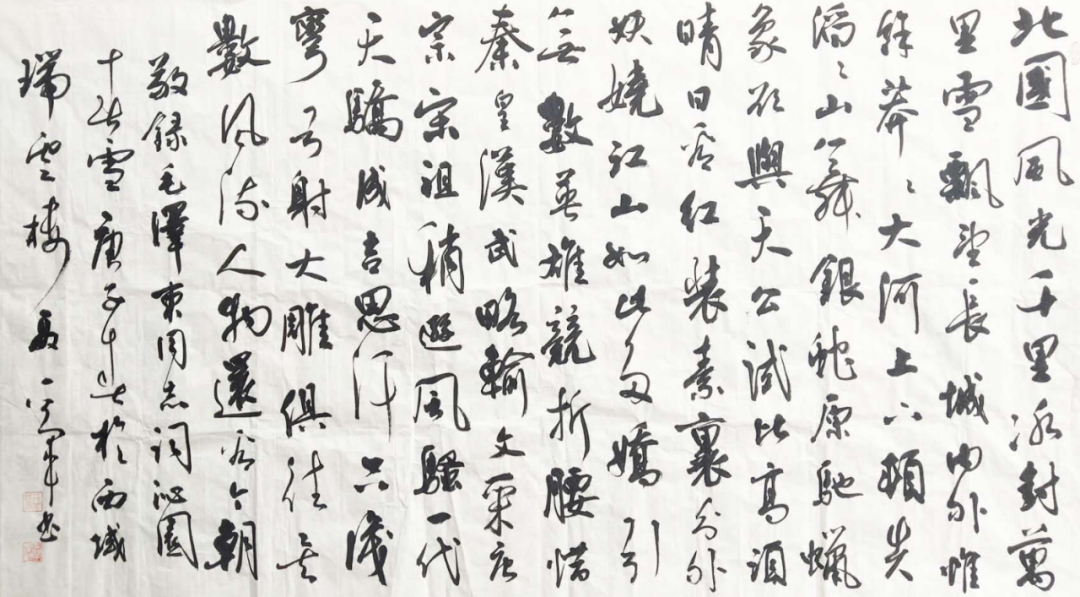 北國風光千里冰封萬
里雪飄望長城內外惟
餘莽〻大河上下頓失
滔〻山舞銀蛇原馳蠟
象欲與天公試比高須
晴日看紅裝素裹分外
妖嬈江山如此多嬌引
無數英雄競折腰惜
秦皇漢武略輸文采唐
宗宋祖稍遜風騷一代
天驕成吉思汗只識
彎弓射大雕俱往矣
數風流人物還看今朝
敬錄毛澤東同志詞沁園
春雪庚子於西域
瑞雲樓書